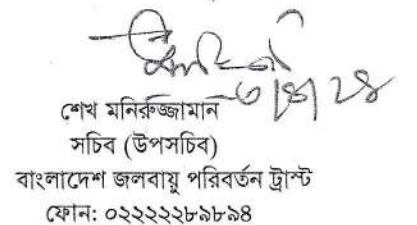 শেখ মনিরুজ্জামান
সচিব (উপসচিব)
বাংলাদেশ জলবায়ু পরিবর্তন ট্রাস্ট
ফোন: ০২২২২২৮৯৮৯৪